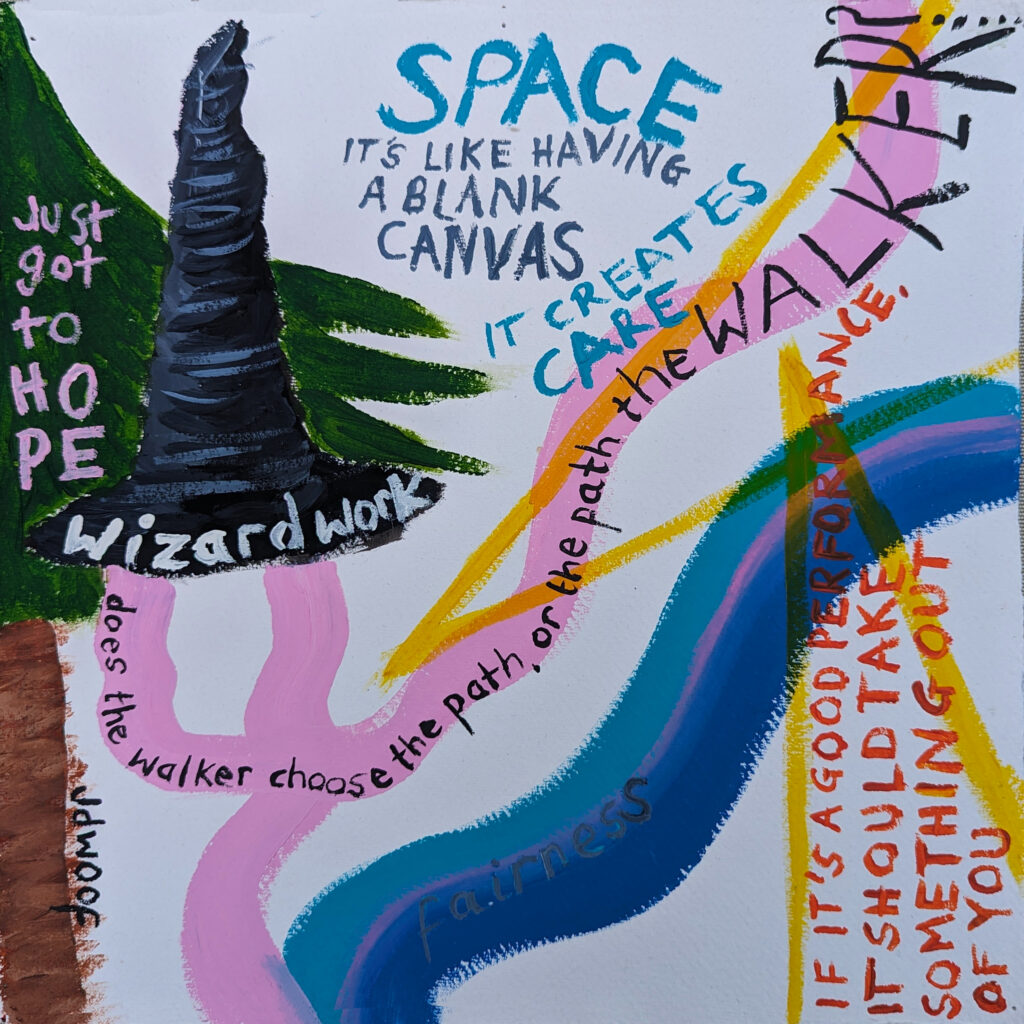 SPACE
IT'S LIKE HAVING
A BLANK
CANVAS
IT CREATES
CARE
Just
got
to
HO
PE
Wizard work
does the walker choose the path, or the path the WALKER?!.....
foompr
fairness
IF IT'S A GOOD PERFORMANCE,
IT SHOULD TAKE
SOMETHING OUT
OF YOU